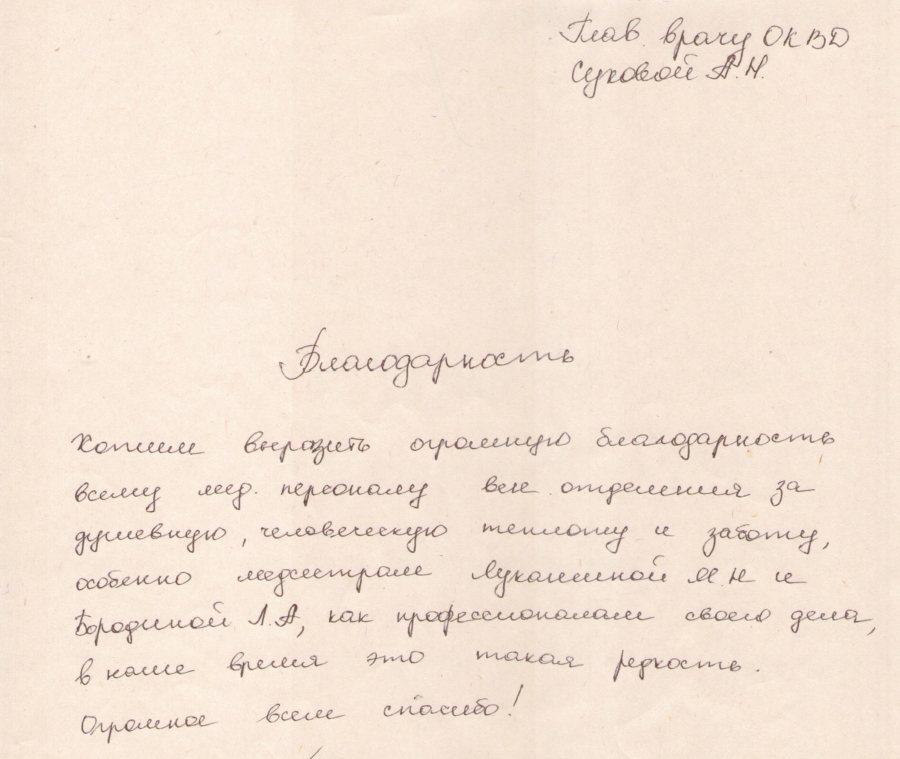 Глав. врачу ОКВД
Суховой А.Н.
Благодарность
Хотим выразить огромную благодарность
всему мед. персоналу вен. отделения за
душевную, человеческую теплоту и заботу,
особенно медсестрам Лукашиной М.Н и
Бородиной Л.А, как профессионалам своего дела,
в наше время это такая редкость.
Огромное всем спасибо!